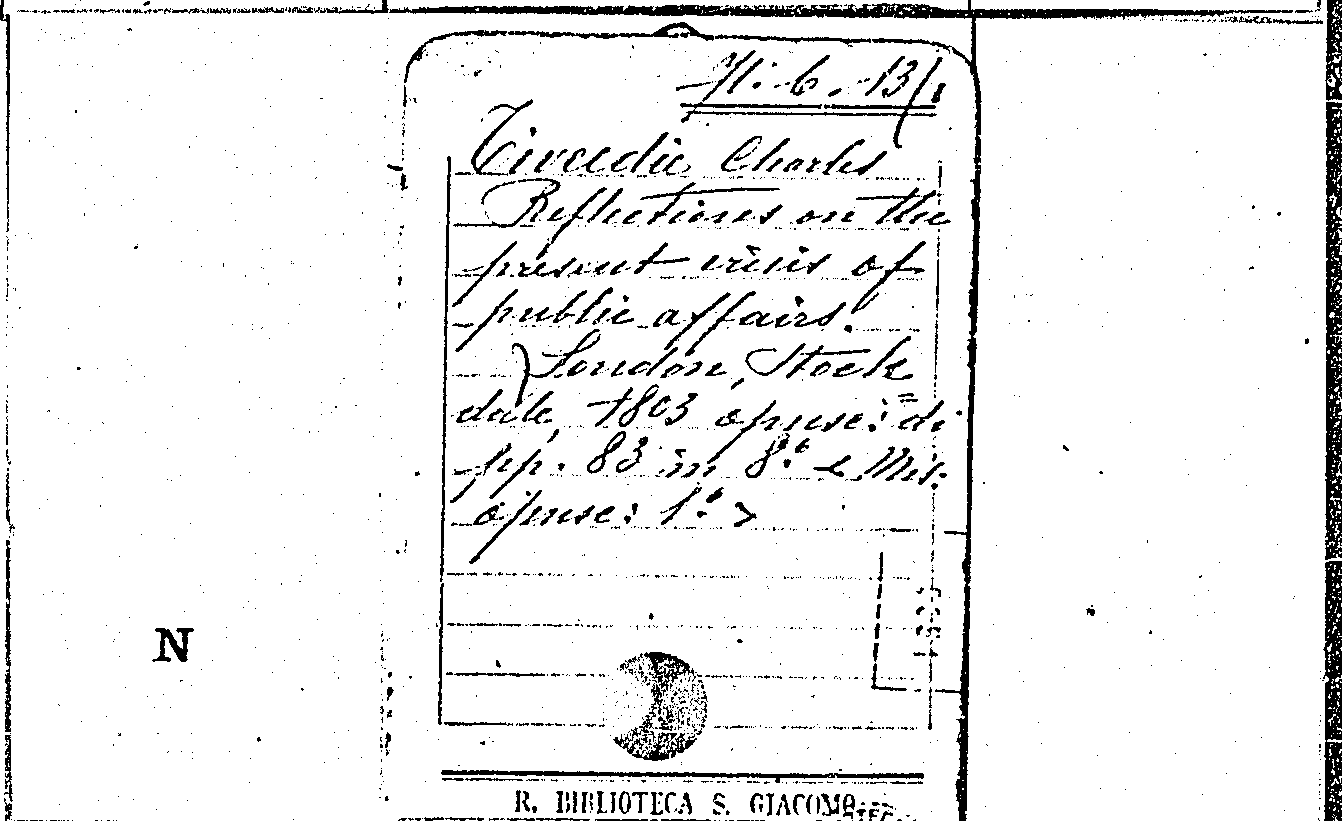 H. 6. 13/1
Tweedie Charles
Reflections on the
present crisis of
public affairs.
London, Stock=
dale, 1803 opusc: di
pp. 83 in 8.° < Mis.
opusc: 1.° >
N
R. BIBLIOTECA S. GIACOMO